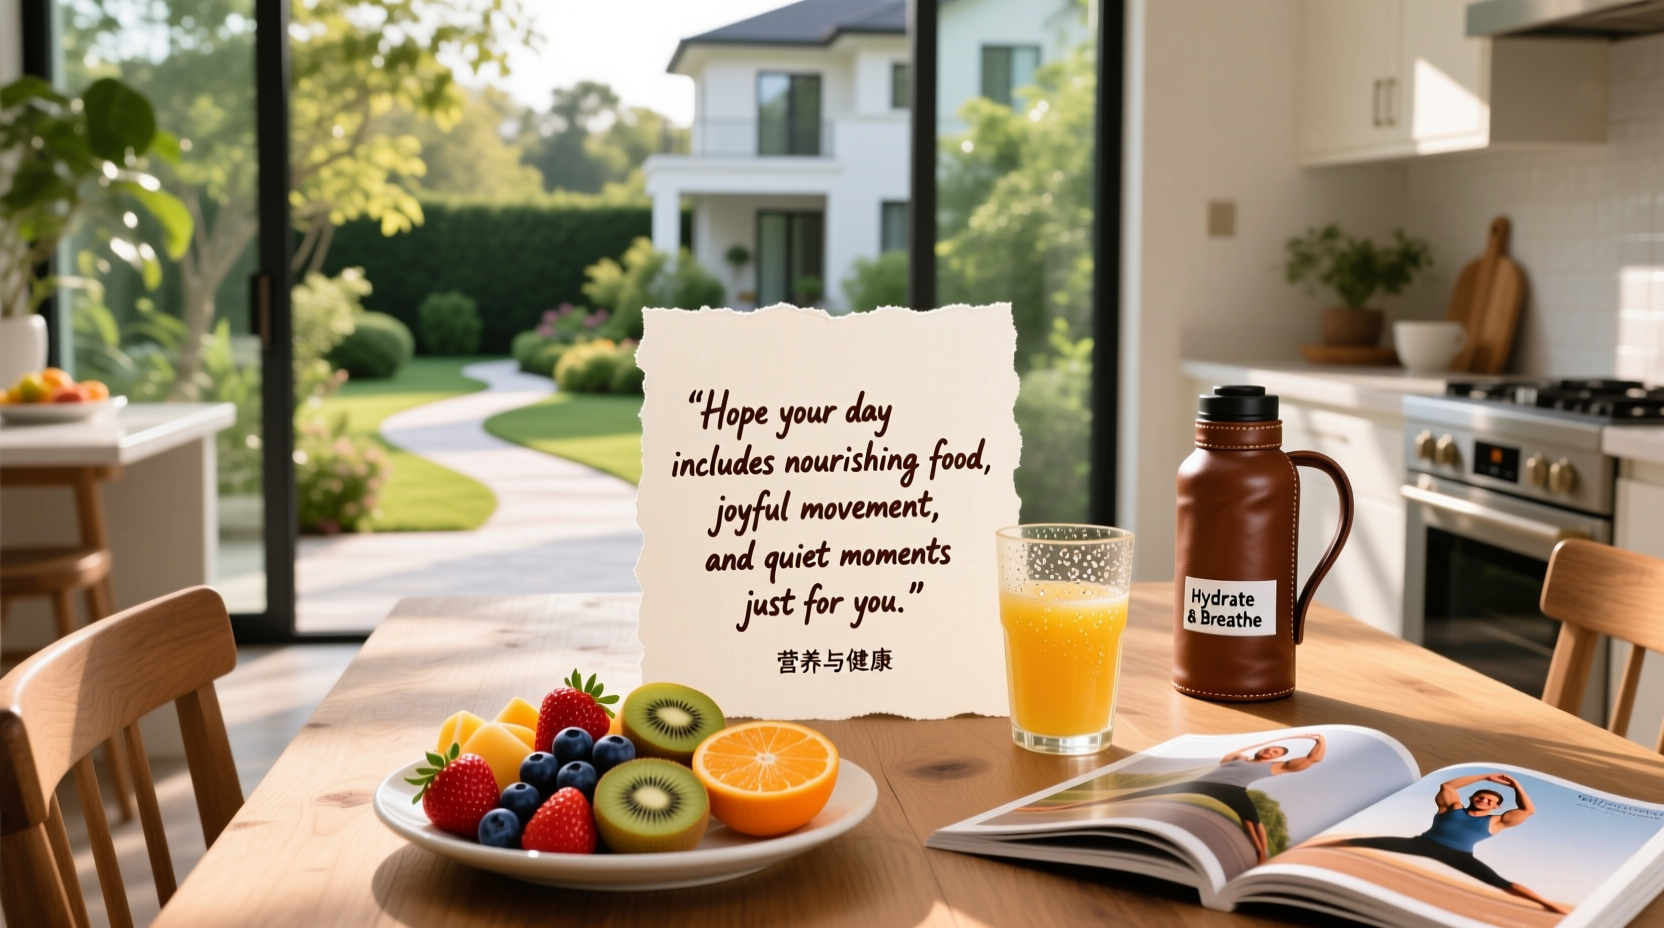 “Hope your day
includes nourishing food,
joyful movement,
and quiet moments
just for you.”
营养与健康
Hydrate
& Breathe